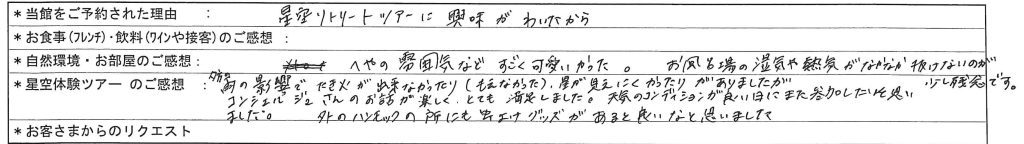 *当館をご予約された理由 : 星空リトリートツアーに興味がわいたから
*お食事(フレンチ)・飲料(ワインや接客)のご感想 :
*自然環境・お部屋のご感想 : へやの雰囲気など すごく可愛いかった。 お風呂場の湿気や熱気がなかなか抜けないのが少し残念です。
*星空体験ツアー のご感想 : 台風の影響で、たき火が出来なかったり(もえなかった)、星が見えにくかったり がありましたが
コンシェルジュさんのお話が楽しく、とても満足しました。天気のコンディションが良い日にまた参加したいと思い
ました。 外のハンモックの所にも虫よけグッズがあると良いなと思いました
*お客さまからのリクエスト